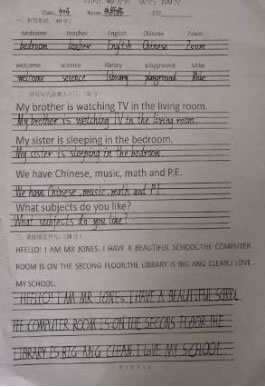 Class: Name
bedroom teacher English Chinese Zoom
bedroom teacher English Chinese Zoom
welcome science library playground
welcome science library playground
My brother is watching TV in the living room.
My brother is watching TV in the living room.
My sister is sleeping in the bedroom.
My sister is sleeping in the bedroom
We have Chinese, music, math and P.E.
We have Chinese, music, math and P.E.
What subjects do you like?
What subjects do you like?
HEELLO! I AM MR JONES. I HAVE A BEAUTIFUL SCHOOL.THE COMPUTER
ROOM IS ON THE SECOND FLOOR.THE LIBRARY IS BIG ANG CLEAN.I LOVE
MY SCHOOL.
HELLO! I AM MR JONES. I HAVE A BEAUTIFUL SCHOOL
THE COMPUTER ROOM IS ON THE SECONS FLOOR.THE
LIBRARY IS BIG ANG CLEAN. I LOVE MY SCHOOL.